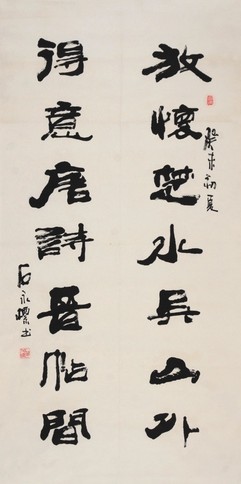 放懷楚水吳山外
癸未初夏
得意唐詩晉帖間
石永